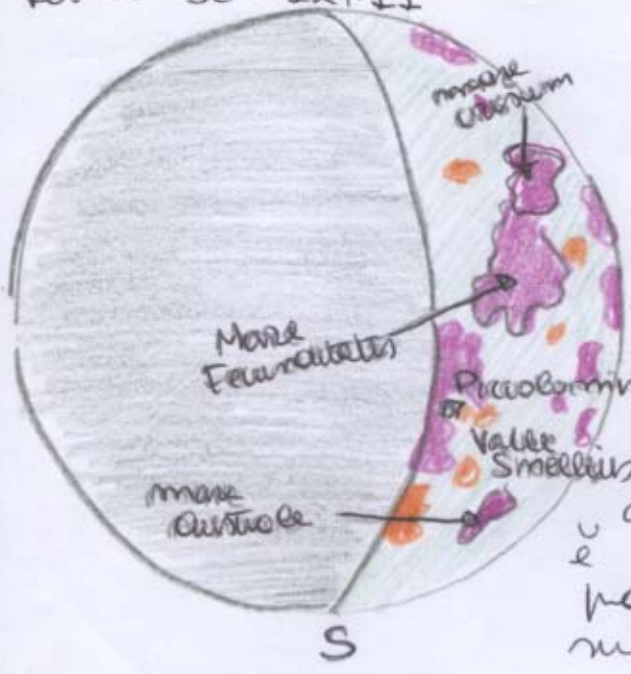 mare
crisium
Mare
Fecunditatis
Piccolomini
Valle
Snellius
mare
australe
è
S